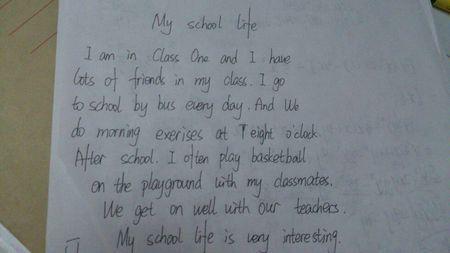 My school life
I am in Class One and I have
lots of friends in my class. I go
to school by bus every day. And We
do morning exerises at eight o'clock.
After school. I often play basketball
on the playground with my classmates.
We get on well with our teachers.
My school life is very interesting.